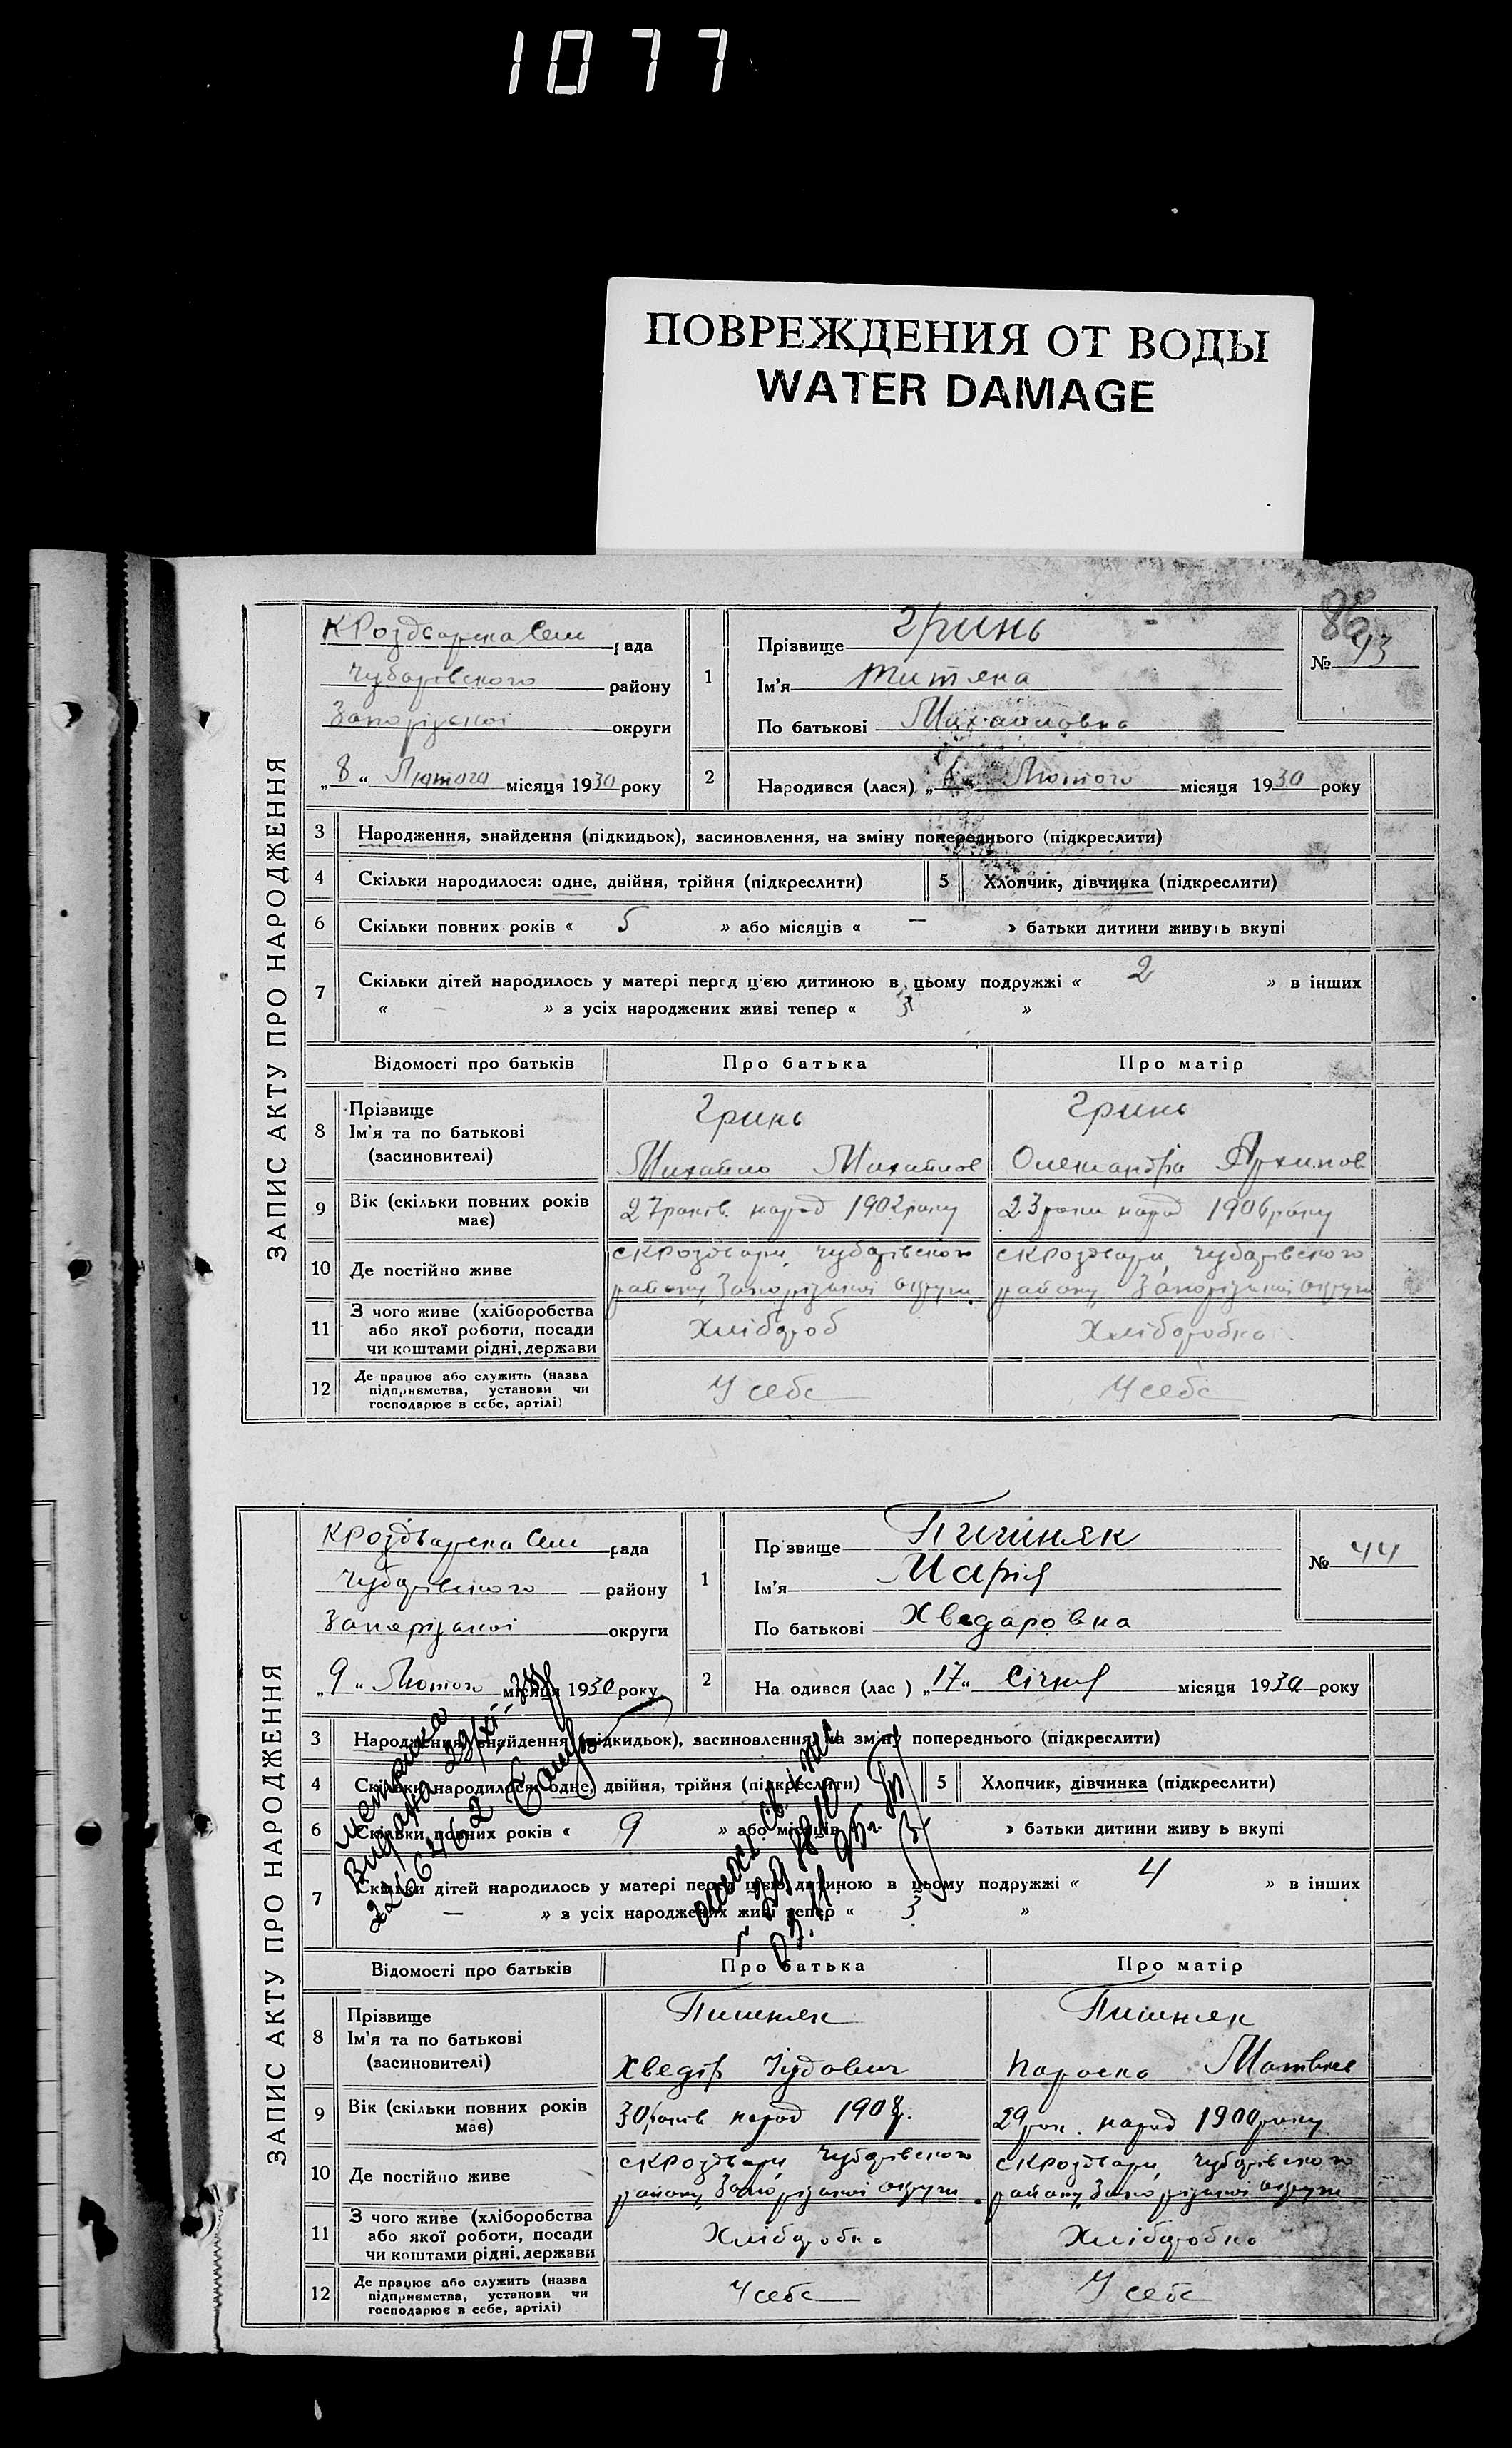 1077
ПОВРЕЖДЕНИЯ ОТ ВОДЫ
WATER DAMAGE
ЗАПИС АКТУ ПРО НАРОДЖЕННЯ
КРоздварска Сель рада
Чубарівського району
Запорізької округи
„8“ Лютого місяця 1930 року
1
Прізвище Гринь
Ім'я Титяна
По батькові Михайловна
№ 43
2
Народився (лася) „6“ Лютого місяця 1930 року
3 Народження, знайдення (підкидьок), засиновлення, на зміну попереднього (підкреслити)
4 Скільки народилося: одне, двійня, трійня (підкреслити)
5 Хлопчик, дівчинка (підкреслити)
6 Скільки повних років « 5 » або місяців « — » батьки дитини живуть вкупі
7 Скільки дітей народилось у матері перед цією дитиною в цьому подружжі « 2 » в інших
« — » з усіх народжених живі тепер « 3 »
Відомості про батьків Про батька Про матір
8 Прізвище
Ім'я та по батькові
(засиновителі)
Гринь
Михайло Михайлов
Гринь
Олександра Архипов
9 Вік (скільки повних років має)
27 років народ 1902 року
23 роки народ 1906 року
10 Де постійно живе
с КРоздори, Чубарівського
району Запорізької округи.
с КРоздори, Чубарівського
району Запорізької округи
11 З чого живе (хліборобства
або якої роботи, посади
чи коштами рідні, держави
Хлібороб
Хлібаробка
12 Де працює або служить (назва
підприємства, установи чи
господарює в себе, артілі)
У себе
У себе
ЗАПИС АКТУ ПРО НАРОДЖЕННЯ
КРоздварска Сель рада
Чубарівського району
Запорізької округи
„9“ Лютого місяця 1930 року
1
Прізвище Пишняк
Ім'я Марія
По батькові Хведаровна
№ 44
2
На одився (лас ) „17“ Січня місяця 1930 року
3 Народження, знайдення (підкидьок), засиновлення, на зміну попереднього (підкреслити)
4 Скільки народилося: одне, двійня, трійня (підкреслити)
5 Хлопчик, дівчинка (підкреслити)
6 Скільки повних років « 9 » або місяців » батьки дитини живу ь вкупі
7 Скільки дітей народилось у матері перед цією дитиною в цьому подружжі « 4 » в інших
— » з усіх народжених живі тепер « 3 »
Видана
Відомості про батьків Про батька Про матір
8 Прізвище
Ім'я та по батькові
(засиновителі)
Пишняк
Хведір Іудович
Пишняк
Параска Матвіев
9 Вік (скільки повних років має)
30 років народ
29 рок. народ 1900 року
10 Де постійно живе
с КРоздори, Чубарівського
району Запорізької округи.
с КРоздори, Чубарівського
району Запорізької округи
11 З чого живе (хліборобства
або якої роботи, посади
чи коштами рідні, держави
Хлібаробка
Хлібаробка
12 Де працює або служить (назва
підприємства, установи чи
господарює в себе, артілі)
У себе
У себе